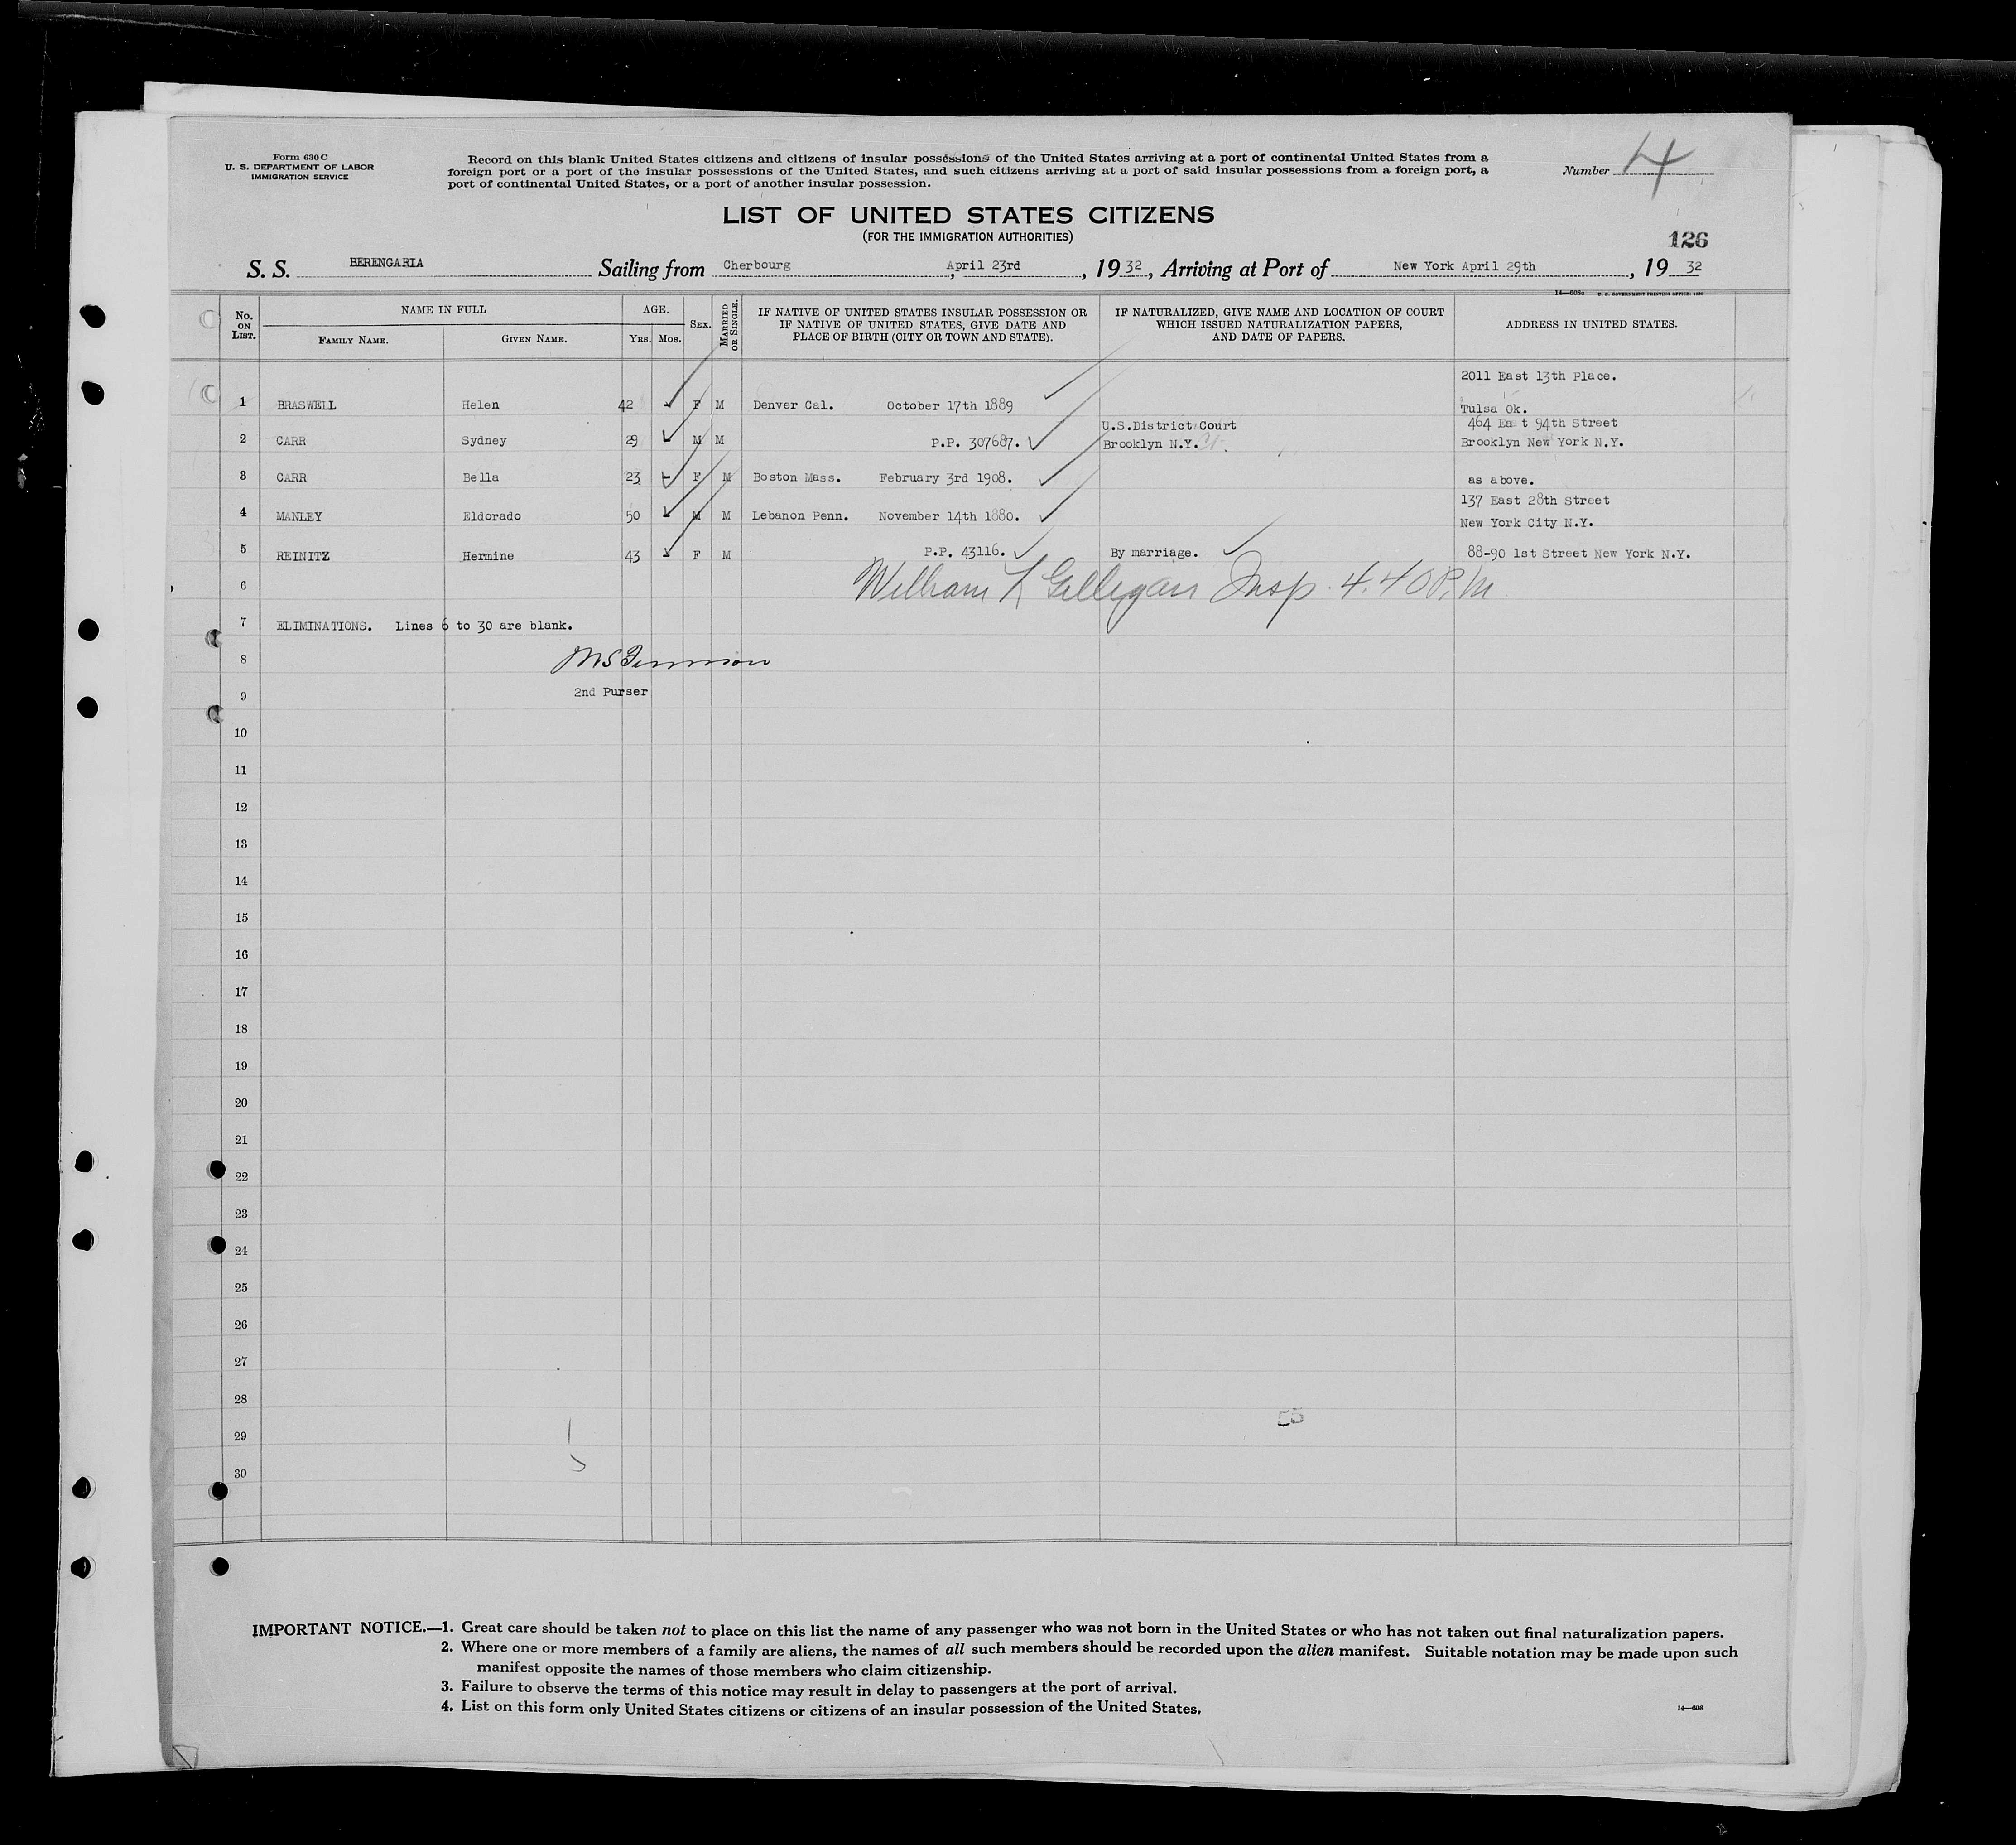 Form 630 C
U. S. DEPARTMENT OF LABOR
IMMIGRATION SERVICE
Record on this blank United States citizens and citizens of insular possessions of the United States arriving at a port of continental United States from a
foreign port or a port of the insular possessions of the United States, and such citizens arriving at a port of said insular possessions from a foreign port, a
port of continental United States, or a port of another insular possession.
Number 4
LIST OF UNITED STATES CITIZENS
(FOR THE IMMIGRATION AUTHORITIES)
126
S. S. BERENGARIA Sailing from Cherbourg April 23rd, 1932, Arriving at Port of New York April 29th, 19 32
No. ON LIST. NAME IN FULL AGE. SEX. MARRIED OR SINGLE. IF NATIVE OF UNITED STATES INSULAR POSSESSION OR IF NATIVE OF UNITED STATES, GIVE DATE AND PLACE OF BIRTH (CITY OR TOWN AND STATE). IF NATURALIZED, GIVE NAME AND LOCATION OF COURT WHICH ISSUED NATURALIZATION PAPERS, AND DATE OF PAPERS. ADDRESS IN UNITED STATES.
FAMILY NAME. GIVEN NAME. YRS. MOS.
2011 East 13th Place.
1 BRASWELL Helen 42 F M Denver Cal. October 17th 1889
Tulsa Ok.
U.S.District Court 464 Ea t 94th Street
2 CARR Sydney 29 M M P.P. 307687. Brooklyn N.Y. Brooklyn New York N.Y.
3 CARR Bella 23 F M Boston Mass. February 3rd 1908. as above.
137 East 28th Street
4 MANLEY Eldorado 50 M M Lebanon Penn. November 14th 1880.
New York City N.Y.
5 REINITZ Hermine 43 F M P.P. 43116. By marriage. 88-90 1st Street New York N.Y.
6 William L Gilligan Insp. 4.40 P.M
7 ELIMINATIONS. Lines 6 to 30 are blank.
8
9 2nd Purser
10
11
12
13
14
15
16
17
18
19
20
21
22
23
24
25
26
27
28
29
30
IMPORTANT NOTICE.—1. Great care should be taken not to place on this list the name of any passenger who was not born in the United States or who has not taken out final naturalization papers.
2. Where one or more members of a family are aliens, the names of all such members should be recorded upon the alien manifest. Suitable notation may be made upon such
manifest opposite the names of those members who claim citizenship.
3. Failure to observe the terms of this notice may result in delay to passengers at the port of arrival.
4. List on this form only United States citizens or citizens of an insular possession of the United States.
14—608